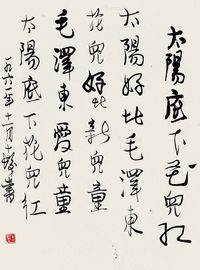 太陽底下花兒紅
太陽好比毛澤東
花兒好比新兒童
毛澤東愛兒童
太陽底下花兒紅
一九六一年十一月 書